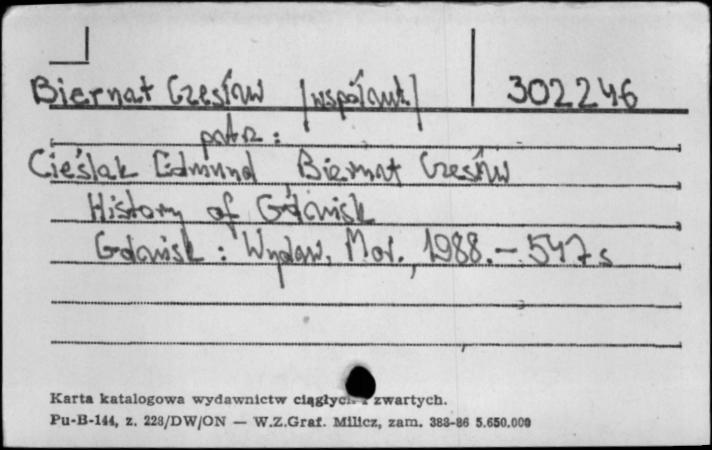 Biernat Czesław /współaut/ 302246
patrz:
Cieślak Edmund Biernat Czesław
History of Gdańsk
Gdańsk : Wydaw. Mor., 1988. - 547 s
Karta katalogowa wydawnictw ciągłych i zwartych.
Pu-B-144, z. 228/DW/ON — W.Z.Graf. Milicz, zam. 388-86 5.650.000